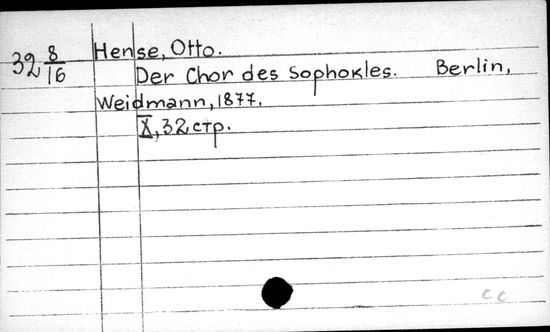 32 8/16
Hense, Otto.
Der Chor des Sophokles. Berlin,
Weidmann, 1877.
X, 32 стр.
cc